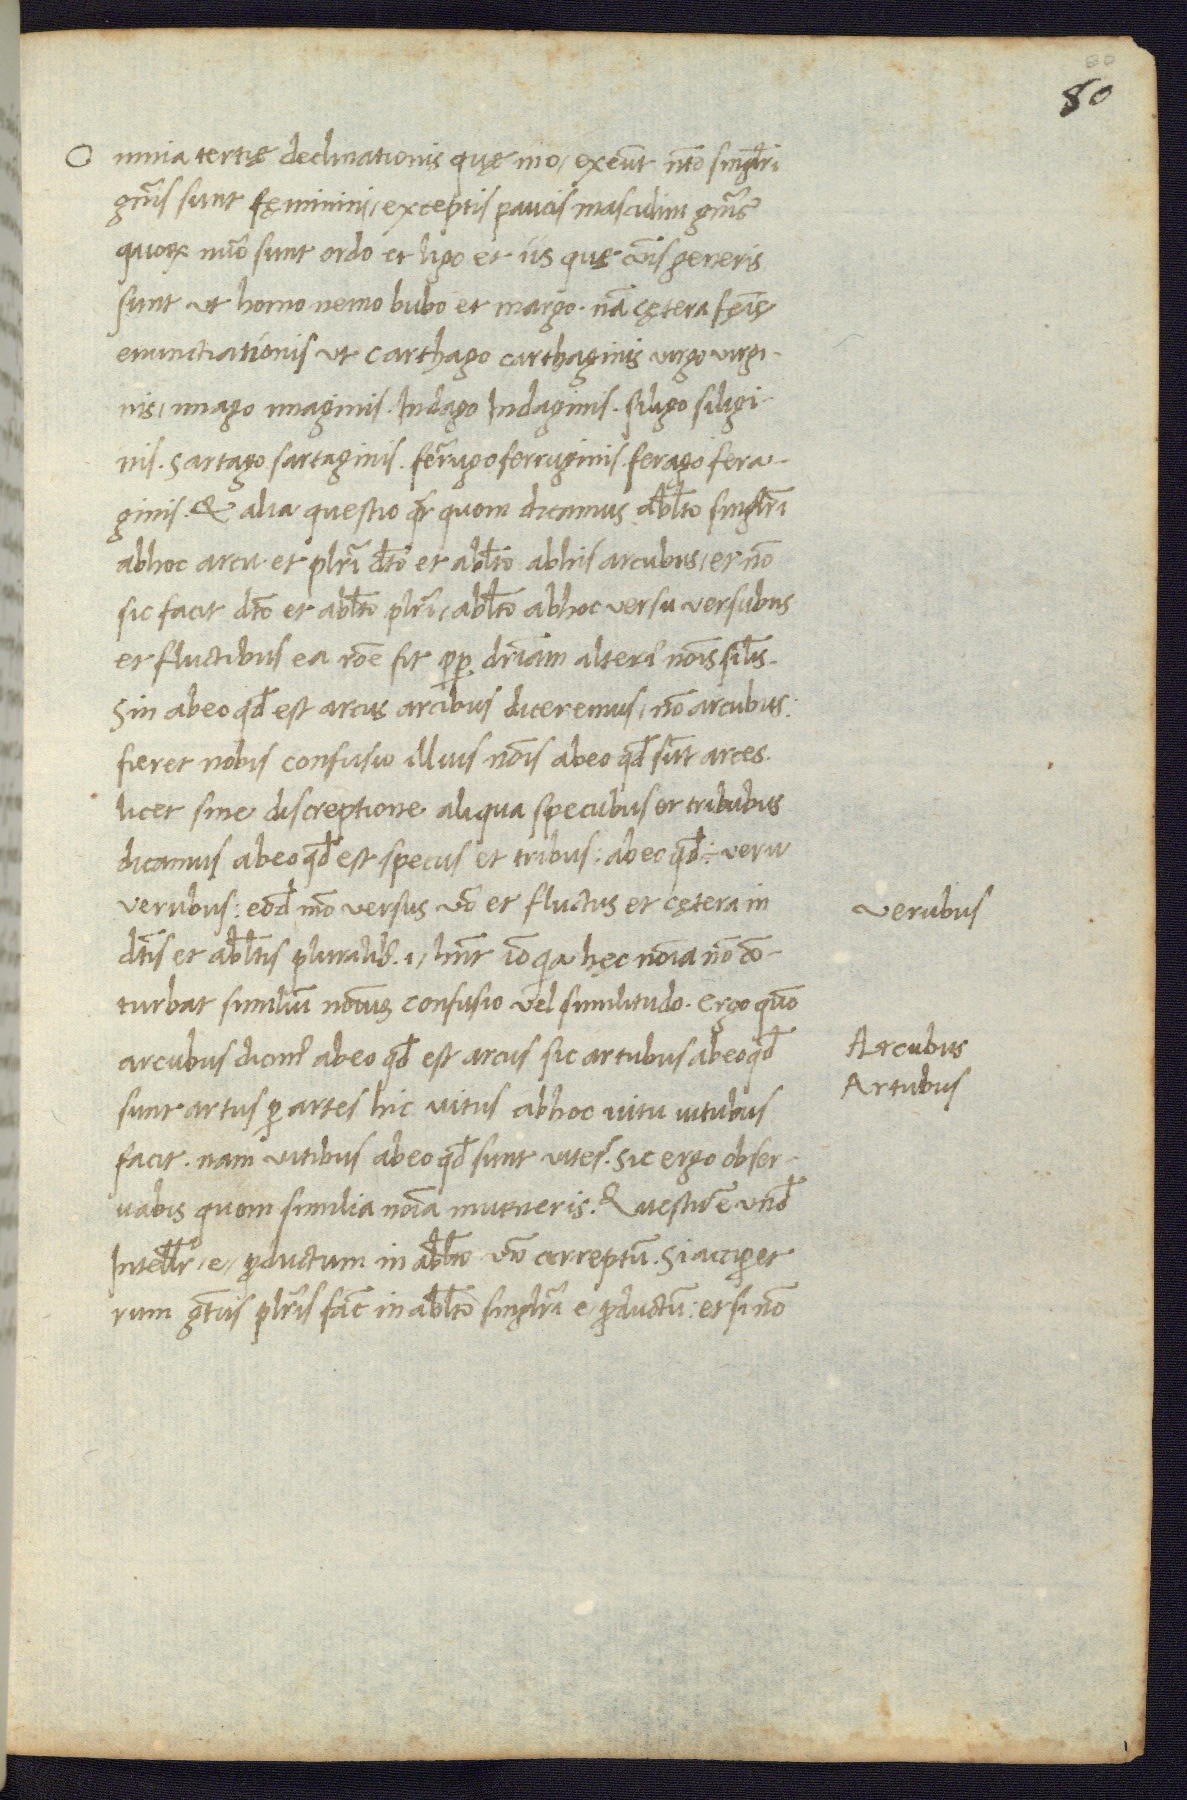 80
80
Omnia tertię declinationis quę in o, exeūt nt̄o singl̄ri
gn̄is sunt fęminini, exceptis paucis masculini gn̄is
quoꝝ nūo sunt ordo et ligo et iis quę cōis generis
sunt ut homo nemo bubo et margo. nā cętera fęīę
enunctiationis ut carthago carthaginis virgo virgi-
nis, imago imaginis. Indago Indaginis. siligo siligi-
nis. sartago sartaginis. ferrugo ferruginis. ferago fera-
ginis. & alia questio qr̄ quom dicamus abl̄to singl̄ri
abhoc arcu et plr̄i dt̄o et abl̄to abhis arcubus, et nō
sic facit dt̄o et abl̄to plr̄i, abl̄to abhoc versu versubus
et fluctibus ea rōe fit ꝓp dr̄iam alteri' nōis sil̄is.
Sin abeo qd̄ est arcus arcibus diceremus, nō arcubus:
fieret nobis confusio illius nōis abeo qd̄ sūt arces.
licet sine discreptione aliqua specubus et tribubus
dicamus abeo qd̄ est specus et tribus: abeo qd̄ ÷ veru
verubus: eōd mō versus v̄o et fluctus et cętera in
dt̄is et abl̄tis pluralib. i, hn̄t iō qa hęc nōia nō cō-
turbat similiū nōius confusio vel similitudo. Ergo quō
arcubus dicim' abeo qd̄ est arcus sic artubus abeo qd̄
sunt artus ꝑ artes hic vitus abhoc vitu vitubus
facit. nam vitibus abeo qd̄ sunt vites. Sic ergo obser-
vabis quom similia nōia inveneris. Quęstū ē und̄
Intell̄r, e, ꝓductum in abl̄to v̄o correptū. Si acciperet
rum gt̄uis plr̄is fac̄ in abl̄to singl̄ri e, ꝓductū: et si nō
verubus
Arcubus
Artubus